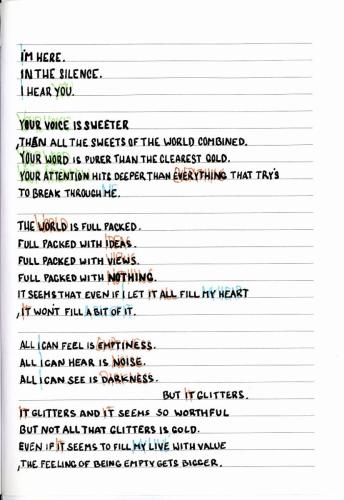 I'M HERE.
IN THE SILENCE.
I HEAR YOU.
YOUR VOICE IS SWEETER
, THAN ALL THE SWEETS OF THE WORLD COMBINED.
YOUR WORD IS PURER THAN THE CLEAREST GOLD.
YOUR ATTENTION HITS DEEPER THAN EVERYTHING THAT TRY'S
TO BREAK THROUGH ME.
THE WORLD IS FULL PACKED.
FULL PACKED WITH IDEAS.
FULL PACKED WITH VIEWS.
FULL PACKED WITH NOTHING.
IT SEEMS THAT EVEN IF I LET IT ALL FILL MY HEART
, IT WON'T FILL A BIT OF IT.
ALL I CAN FEEL IS EMPTINESS.
ALL I CAN HEAR IS NOISE.
ALL I CAN SEE IS DARKNESS.
BUT IT GLITTERS.
IT GLITTERS AND IT SEEMS SO WORTHFUL
BUT NOT ALL THAT GLITTERS IS GOLD.
EVEN IF IT SEEMS TO FILL MY LIVE WITH VALUE
, THE FEELING OF BEING EMPTY GETS BIGGER.